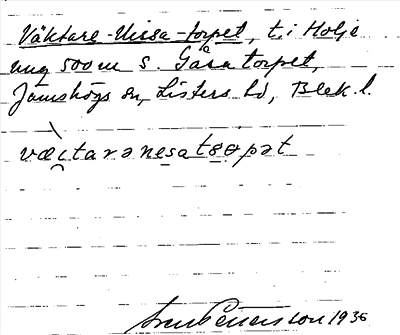 Väktare-Nissa-torpet, t. i Holje
ung 500 m S. Gåratorpet,
Jämshögs sn, Listers hd, Blek. l.
væctarənesatɞɵpət
1936